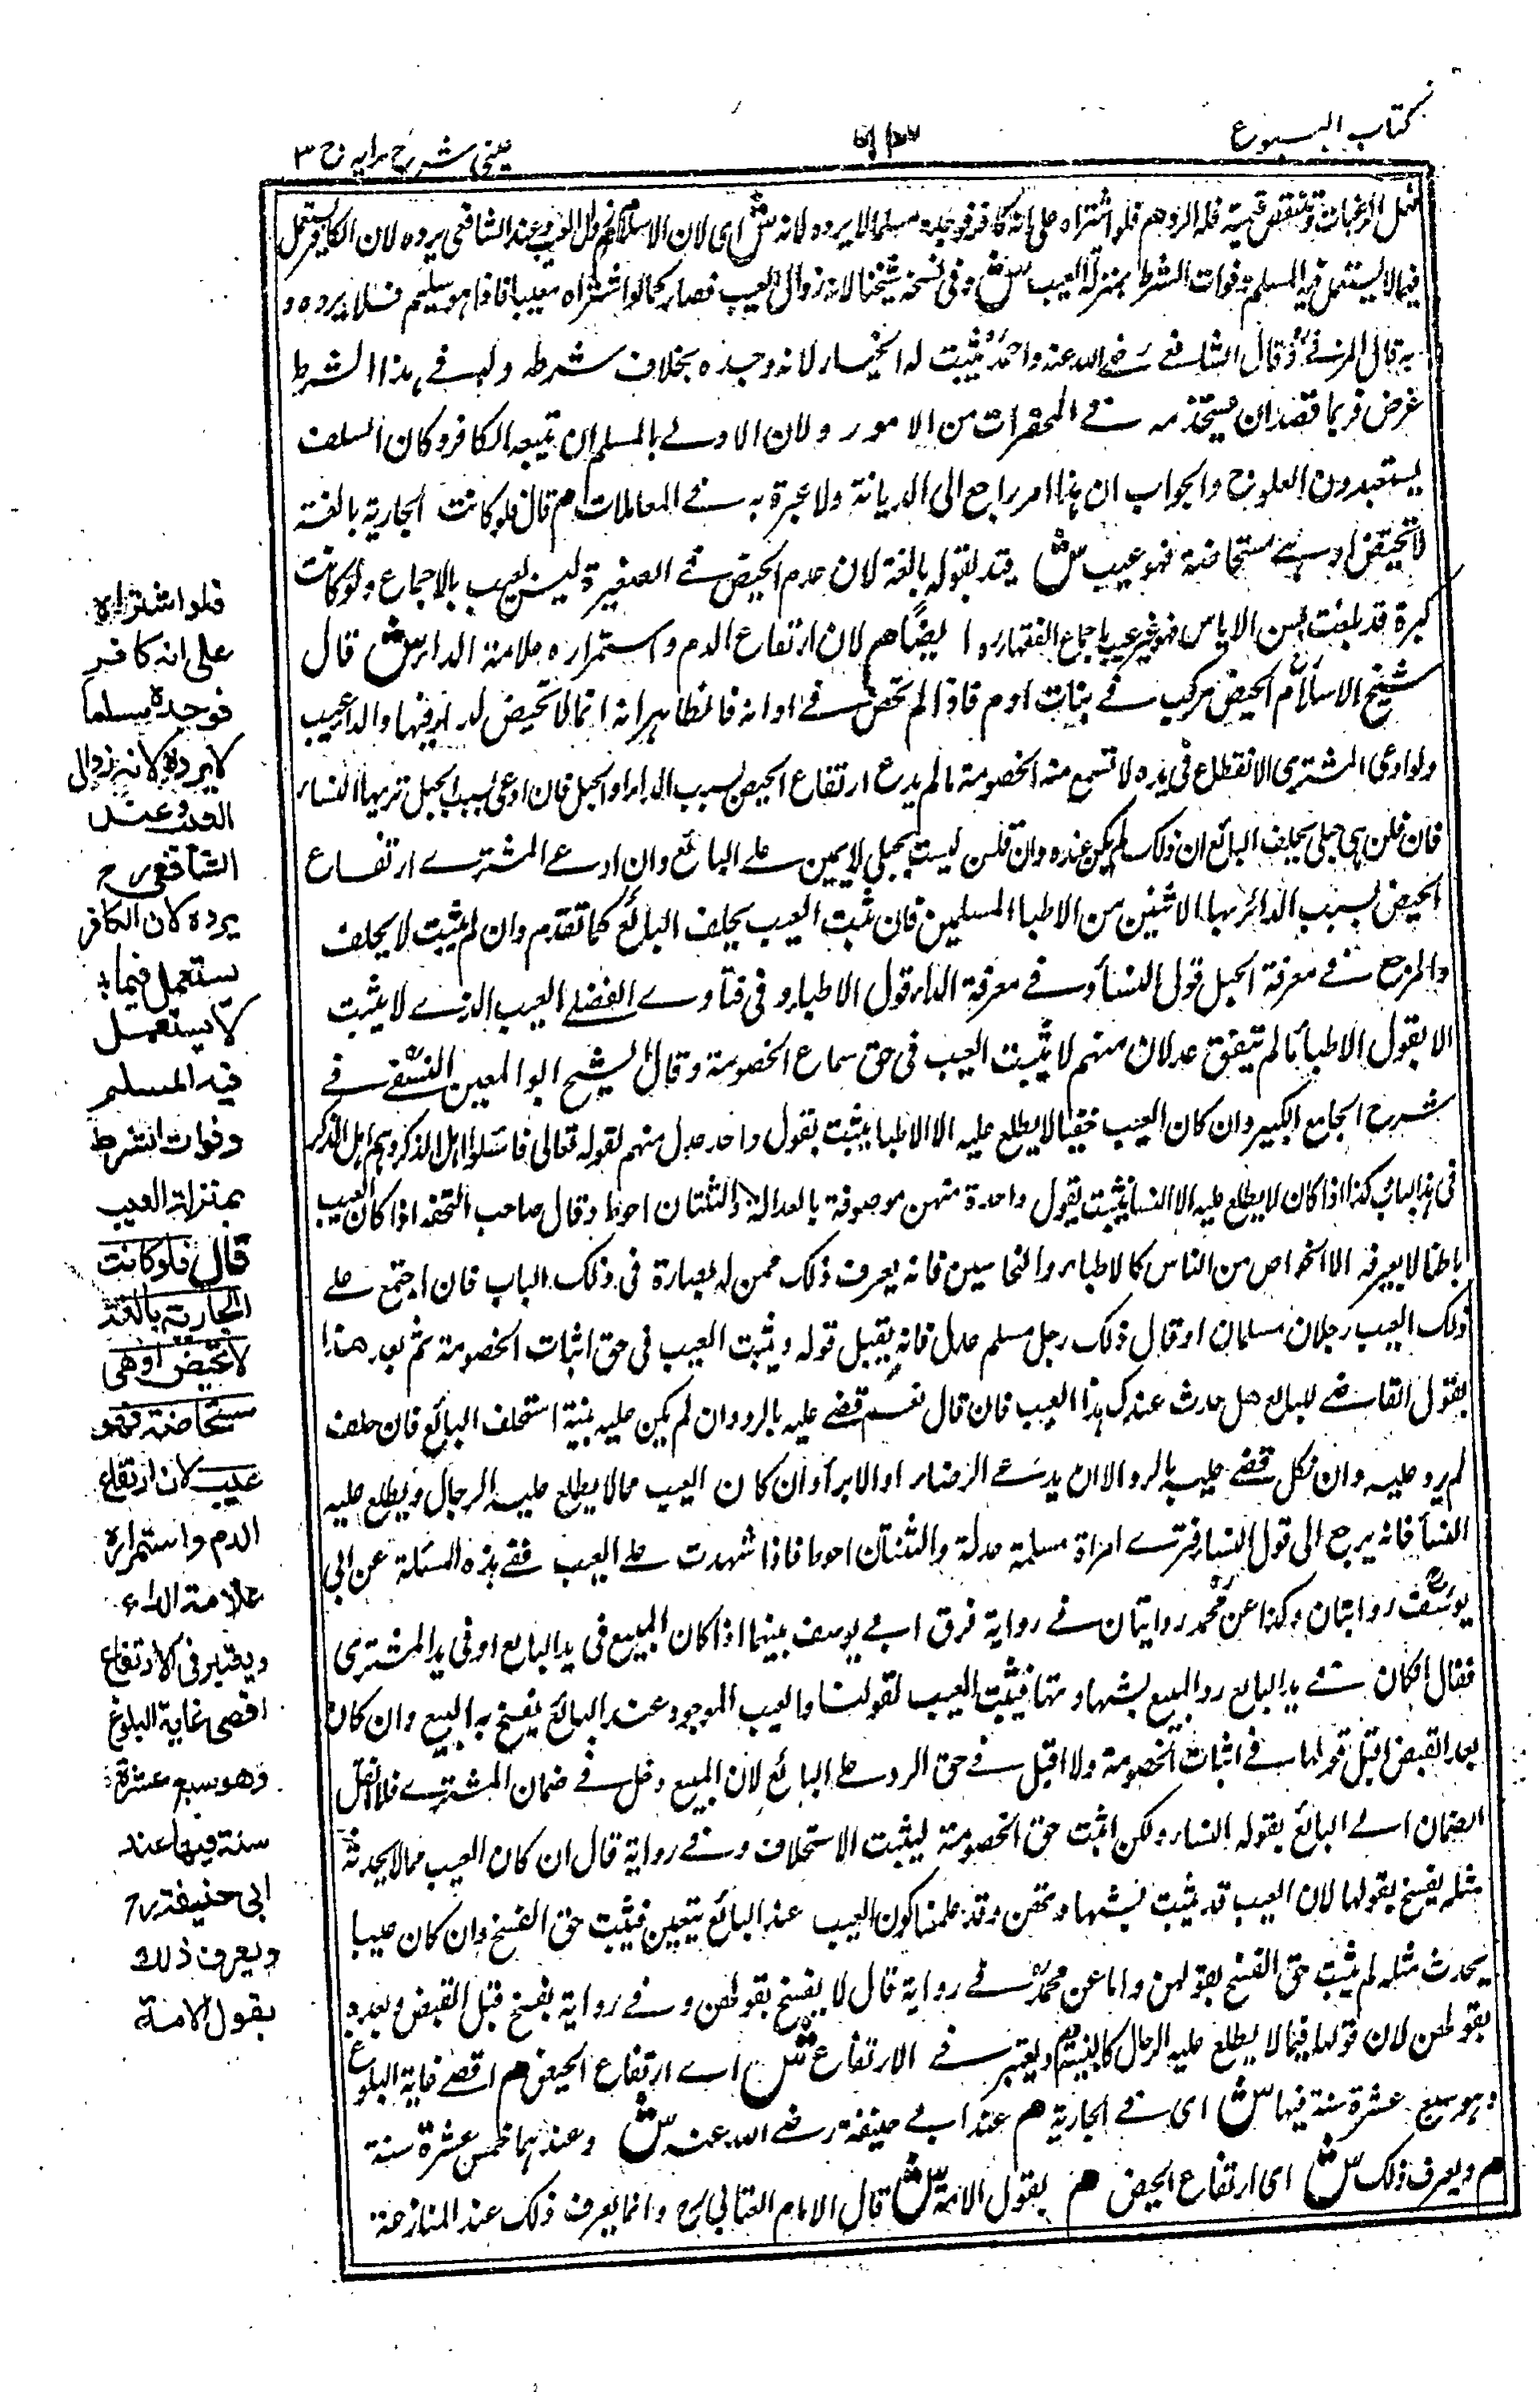 كتاب البيوع
عینی شرح ہدایہ ج ۳
تقل الرغبات وتنتقص قيمته فله الرد هم فلو اشتراه على انه كافر فوجده مسلما لا يرده لانه ش اى لان الاسلام هم زوال العيب وعند الشافعي يرده لان الكافر يستعمل
فيما لا يستعمل فيه المسلم وفوات الشرط بمنزلة العيب ش وفي نسخة شيخنا لانه زوال العيب فصار كما لو اشتراه معيبا فاذا هو سليم فلا يرده و
به قال المزني وقال الشافعي رضي الله عنه واحمد يثبت له الخيار لانه وجده بخلاف شرطه وله في هذا الشرط
غرض فربما قصد ان يستخدمه في المحقرات من الامور ولان الاولى بالمسلم ان يتبعه الكافر وكان السلف
يستعبدون العلوج والجواب ان هذا امر راجع الى الديانة ولا عبرة به في المعاملات م قال فلو كانت الجارية بالغة
لا تحيض او هي مستحاضة فهو عيب ش قيد بقوله بالغة لان عدم الحيض في الصغيرة ليس بعيب بالاجماع ولو كانت
كبيرة قد بلغت سن الاياس فهو غير عيب باجماع الفقهاء ايضا هم لان ارتفاع الدم واستمراره علامة الداء ش قال
شيخ الاسلام الحيض مركب في بنات ادم فاذا لم تحض في اوانه فالظاهر انه انما لا تحيض لداء فيها والداء عيب
ولو ادعى المشترى الانقطاع في يده لا تسمع منه الخصومة ما لم يدع ارتفاع الحيض بسبب الداء او الحبل فان ادعى بسبب الحبل تريها النساء
فان قلن هي حبلى يحلف البائع ان ذلك لم يكن عنده وان قلن ليست بحبلى لا يمين على البائع وان ادعى المشترى ارتفاع
الحيض بسبب الداء يريها الاثنين من الاطباء المسلمين فان ثبت العيب يحلف البائع كما تقدم وان لم يثبت لا يحلف
والمرجع في معرفة الحبل قول النساء وفي معرفة الداء قول الاطباء وفي فتاوى الفضلى العيب الذي لا يثبت
الا بقول الاطباء ما لم يتفق عدلان منهم لا يثبت العيب في حق سماع الخصومة وقال الشيخ ابو المعين النسفي في
شرح الجامع الكبير وان كان العيب خفيا لا يطلع عليه الا الاطباء يثبت بقول واحد عدل منهم لقوله تعالى فاسئلوا اهل الذكر وهم اهل الذكر
في هذا الباب كذا اذا كان لا يطلع عليه الا النساء يثبت بقول واحدة منهن موصوفة بالعدالة والثنتان احوط وقال صاحب التحفة اذا كان العيب
باطنا لا يعرفه الا الخواص من الناس كالاطباء والنخاسين فانه يعرف ذلك ممن له بصارة في ذلك الباب فان اجتمع على
ذلك العيب رجلان مسلمان او قال ذلك رجل مسلم عدل فانه يقبل قوله ويثبت العيب في حق اثبات الخصومة ثم بعد هذا
يقول القاضي للبائع هل حدث عندك هذا العيب فان قال نعم قضى عليه بالرد وان لم يكن عليه بينة استحلف البائع فان حلف
لم يرد عليه وان نكل قضى عليه بالرد الا ان يدعى الرضاء او الابراء وان كان العيب مما لا يطلع عليه الرجال ويطلع عليه
النساء فانه يرجع الى قول النساء فترى امراة مسلمة عدلة والثنتان احوط فاذا شهدت على العيب ففي هذه المسئلة عن ابى
يوسف روايتان وكذا عن محمد روايتان في رواية فرق ابي يوسف بينهما اذا كان المبيع في يد البايع او في يد المشترى
فقال ان كان في يد البايع رد المبيع بشهادتها فيثبت العيب لقولنا والعيب الموجود عند البائع يفسخ به البيع وان كان
بعد القبض اقبل قولها في اثبات الخصومة ولا اقبل في حق الرد على البائع لان المبيع دخل في ضمان المشترى فلا انقل
الضمان الى البائع بقوله النساء ولكن اثبت حق الخصومة ليثبت الاستحلاف وفي رواية قال ان كان العيب مما لا يحدث
مثله يفسخ بقولها لان العيب قد يثبت بشهادتهن وقد علمنا كون العيب عند البائع بيقين فيثبت حق الفسخ وان كان عيبا
يحدث مثله لم يثبت حق الفسخ بقولهن واما عن محمد في رواية قال لا يفسخ بقولهن وفي رواية يفسخ قبل القبض وبعده
بقولهن لان قولها فيما لا يطلع عليه الرجال كالبينة هم ويعتبر في الارتفاع ش اى ارتفاع الحيض هم اقصى غاية البلوغ
وهو سبع عشرة سنة فيها ش اى في الجارية هم عند ابي حنيفة رضي الله عنه ش وعندهما خمس عشرة سنة
م ويعرف ذلك ش اى ارتفاع الحيض م بقول الامة ش قال الامام العتابي رح وانما يعرف ذلك عند المنازعة
فلو اشتراه
على انه كافر
فوجده مسلما
لا يرده لانه زوال
العيب وعند
الشافعي رح
يرده لان الكافر
يستعمل فيما
لا يستعمل
فيه المسلم
وفوات الشرط
بمنزلة العيب
قال فلو كانت
الجارية بالغة
لا تحيض او هي
مستحاضة فهو
عيب لان ارتفاع
الدم واستمراره
علامة الداء
ويعتبر في الارتفاع
اقصى غاية البلوغ
وهو سبع عشرة
سنة فيها عند
ابى حنيفة رح
ويعرف ذلك
بقول الامة